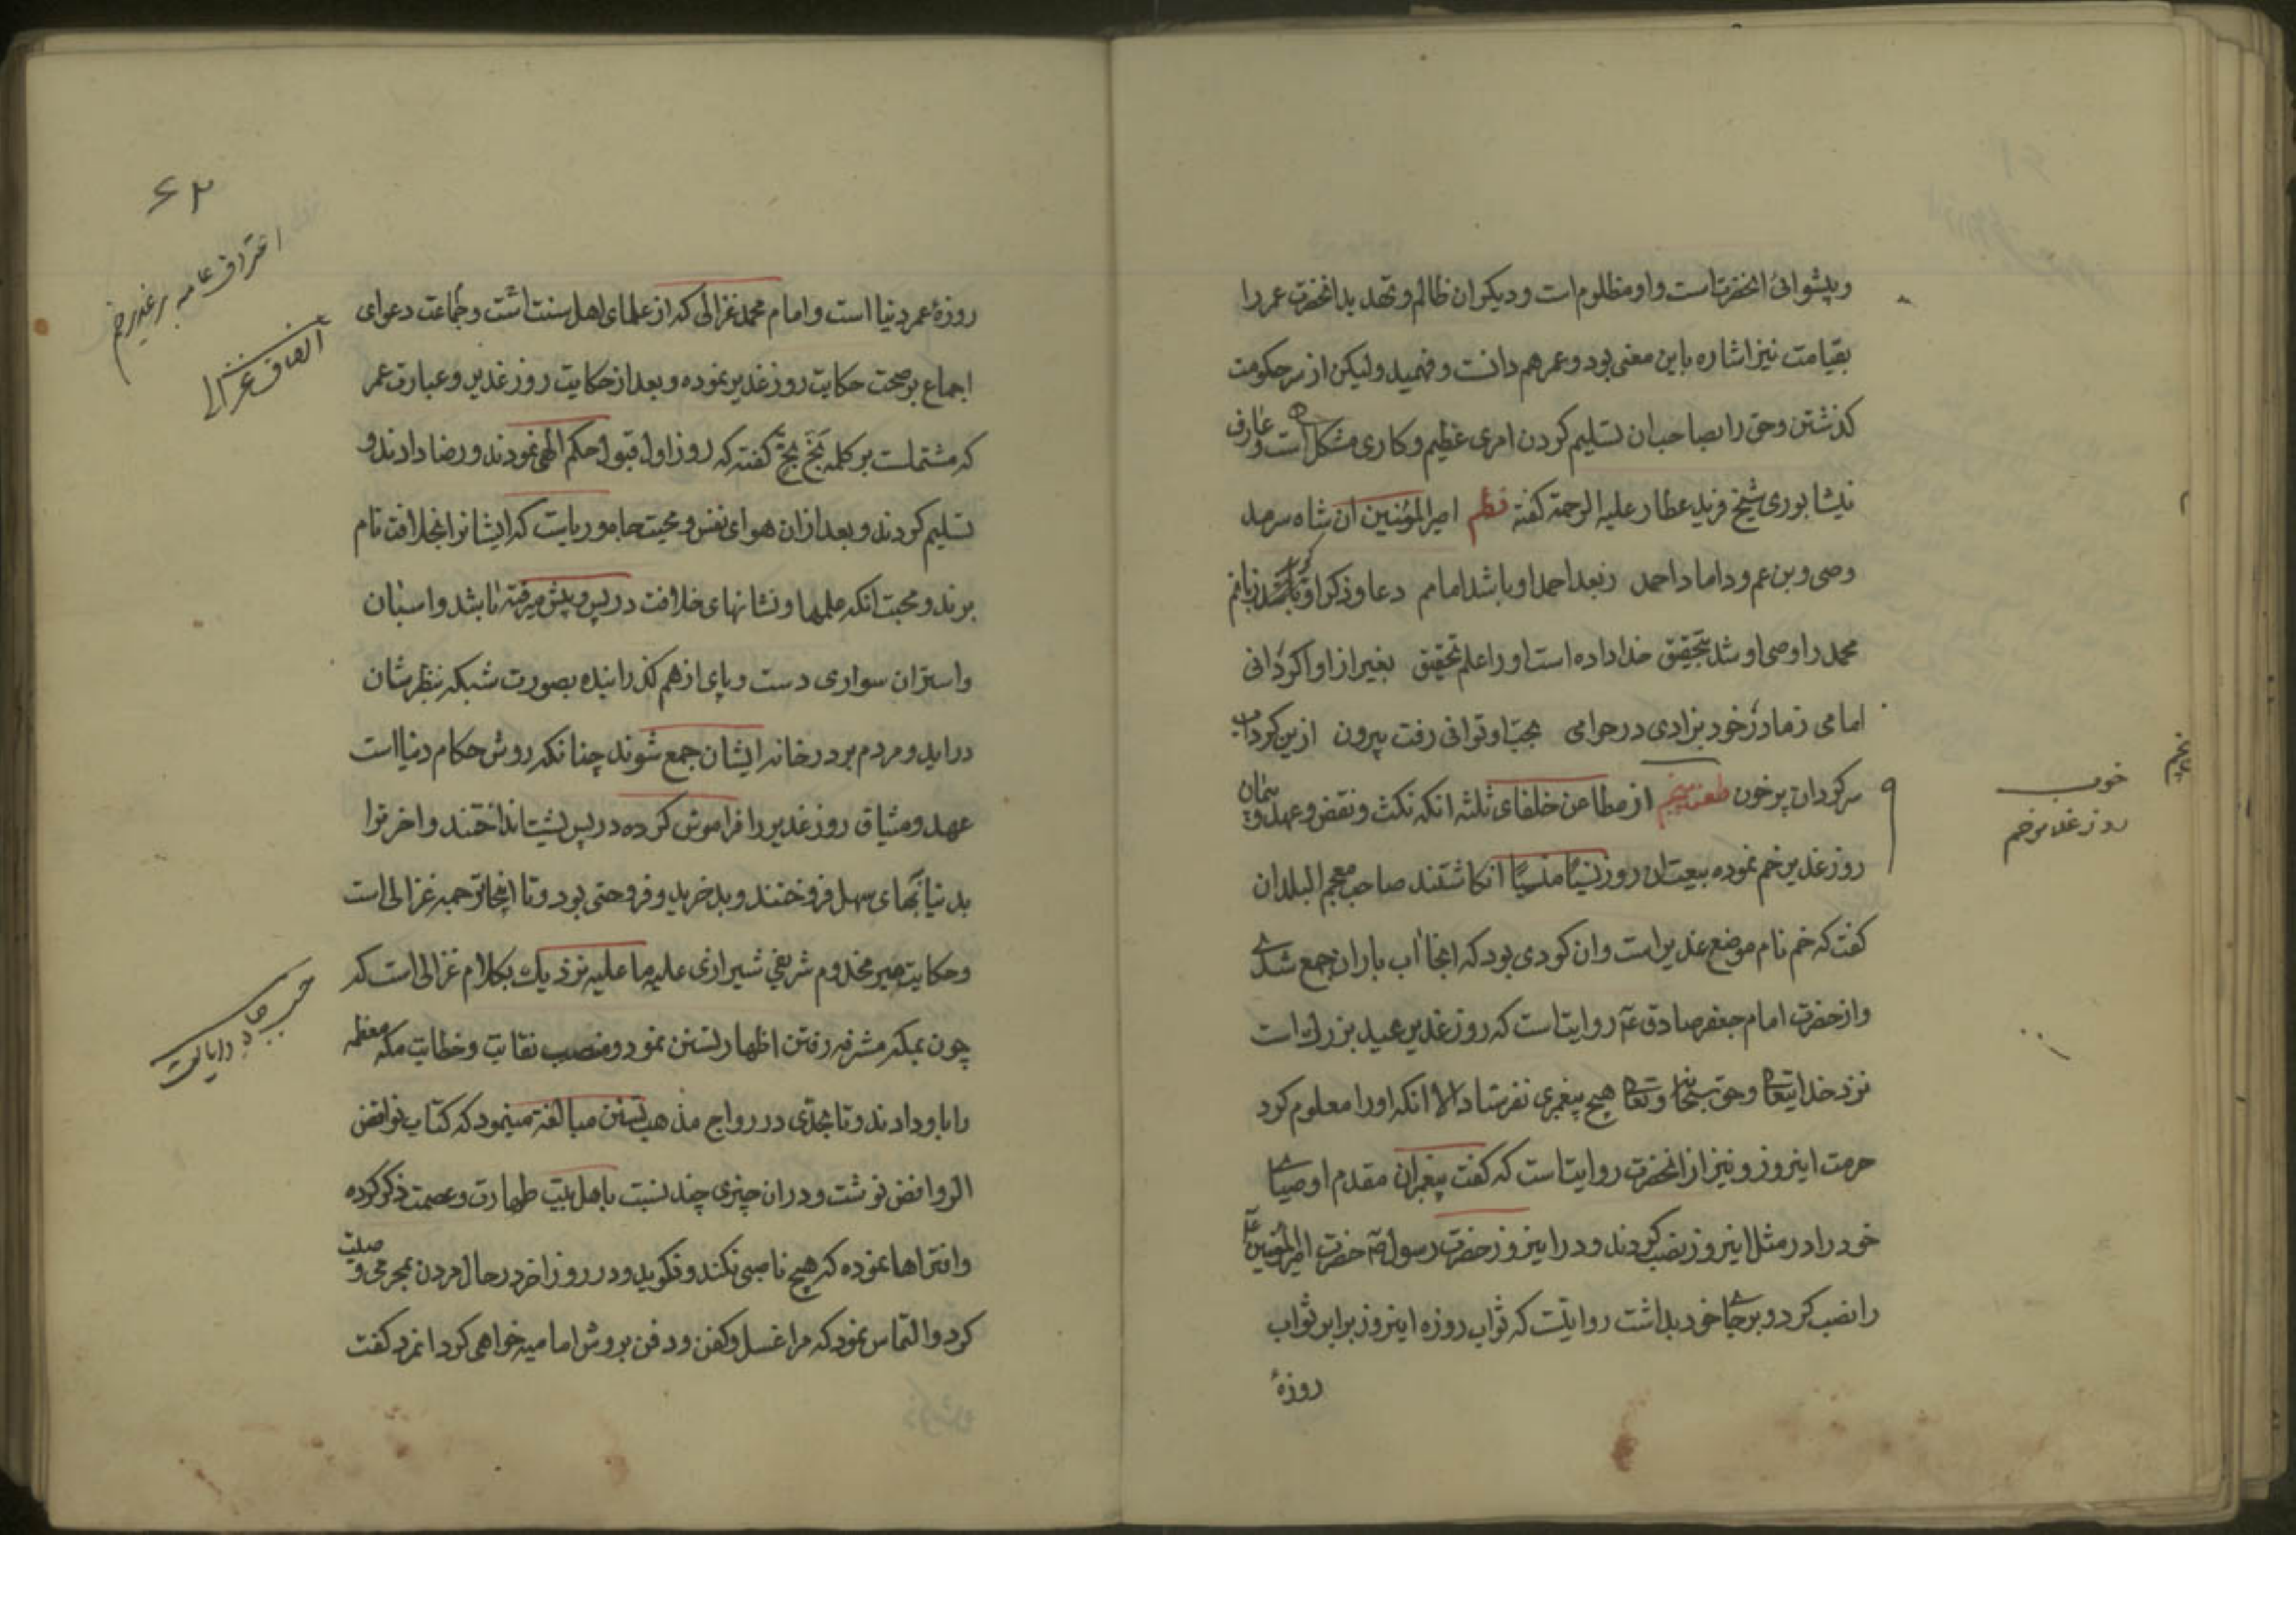 وپیشوائی انحضرتست واو مظلوم است ودیکران ظالم وتهدید انحضرت عمر را
بقیامت نیز اشاره باین معنی بود وعمر هم دانست وفهمید ولیکن از سر حکومت
کذشتن وحق را بصاحب ان تسلیم کردن امری عظیم وکاری مشکل است وعارف
نیشابوری شیخ فرید عطار علیه الرحمة کفته نظم امیرالمؤمنین ان شاه سرمد
وصی وبن عم وداماد احمد زبعد احمد او باشد امامم دعا وذکر او باشد زبانم
محمد را وصی او شد بتحقیق خدا داده است او را علم تحقیق بغیر از او اکر دانی
امامی زمادر خود بزادی در حرامی بحب او توانی رفت بیرون ازین کرداب
سرکردان پرخون طعن پنجم از مطاعن خلفای ثلثه انکه نکث ونقض وعهد وپیمان
روز غدیر خم نموده بیعت ان روز نسیا منسیا انکاشتند صاحب معجم البلدان
کفت که خم نام موضع غدیر است وان کودی بود که انجا اب باران جمع شدی
واز حضرت امام جعفر صادق ع روایتست که روز غدیر عید بزرك است
نزد خدایتعالی وحق سبحانه وتعالی هیچ پیغمبری نفرستاد الا انکه اورا معلوم کرد
حرمت اینروز ونیز از انحضرت روایتست که کفت پیغمبران مقدم اوصیای
خود را در مثل اینروز نصب کردند ودر اینروز حضرت رسول ص حضرت امیرالمؤمنین ع
را نصب کرد وبرجای خود بداشت روایتست که ثواب روزه اینروز برابر ثواب
روزهٔ
خوب
روز غدیر خم
۶۲
اعتراف عامه بر غدیر خم
انصاف غزالی
روزهٔ عمر دنیا است وامام محمد غزالی که از علمای اهل سنت است وجماعت دعوای
اجماع بر صحت حکایت روز غدیر نموده وبعد از حکایت روز غدیر وعبارت عمر
که مشتملست بر کلمه بخ بخ کفته که روز اول قبول حکم الهی نمودند ورضا دادند و
تسلیم کردند وبعد از ان هوای نفس ومحبت جاه وریاست که ایشانرا بخلافت نام
برند ومحبت انکه علمها ونشانهای خلافت در پس وپیش میرفته باشد واسبان
واستران سواری دست وپای از هم کذرانیده بصورت شبکه بنظرشان
دراید ومردم بر در خانه ایشان جمع شوند چنانکه روش حکام دنیا است
عهد ومیثاق روز غدیر را فراموش کرده در پس پشت انداختند واخرت را
بدنیا ببهای سهل فروختند وبد خرید وفروختی بود وتا اینجا ترجمه غزالی است
وحکایت میر مخدوم شریفی شیرازی علیه ما علیه نزدیك بکلام غزالی است که
چون بمکه مشرفه رفتن اظهار تسنن نمود ومنصب نقابت وخطابت مکه معظمه
را باو دادند وتا بحدی در رواج مذهب تسنن مبالغه مینمود که کتاب نواقض
الروافض نوشت ودران چیزی چند نسبت باهل بیت طهارت وعصمت ذکر کرده
وافتراها نموده که هیچ ناصبی نکند ونکوید ودر روز اخر در حال مردن بمحرمی وصیت
کرد والتماس نمود که مرا غسل وکفن ودفن بروش امامیه خواهی کرد انمرد کفت
حب جاه وریاست